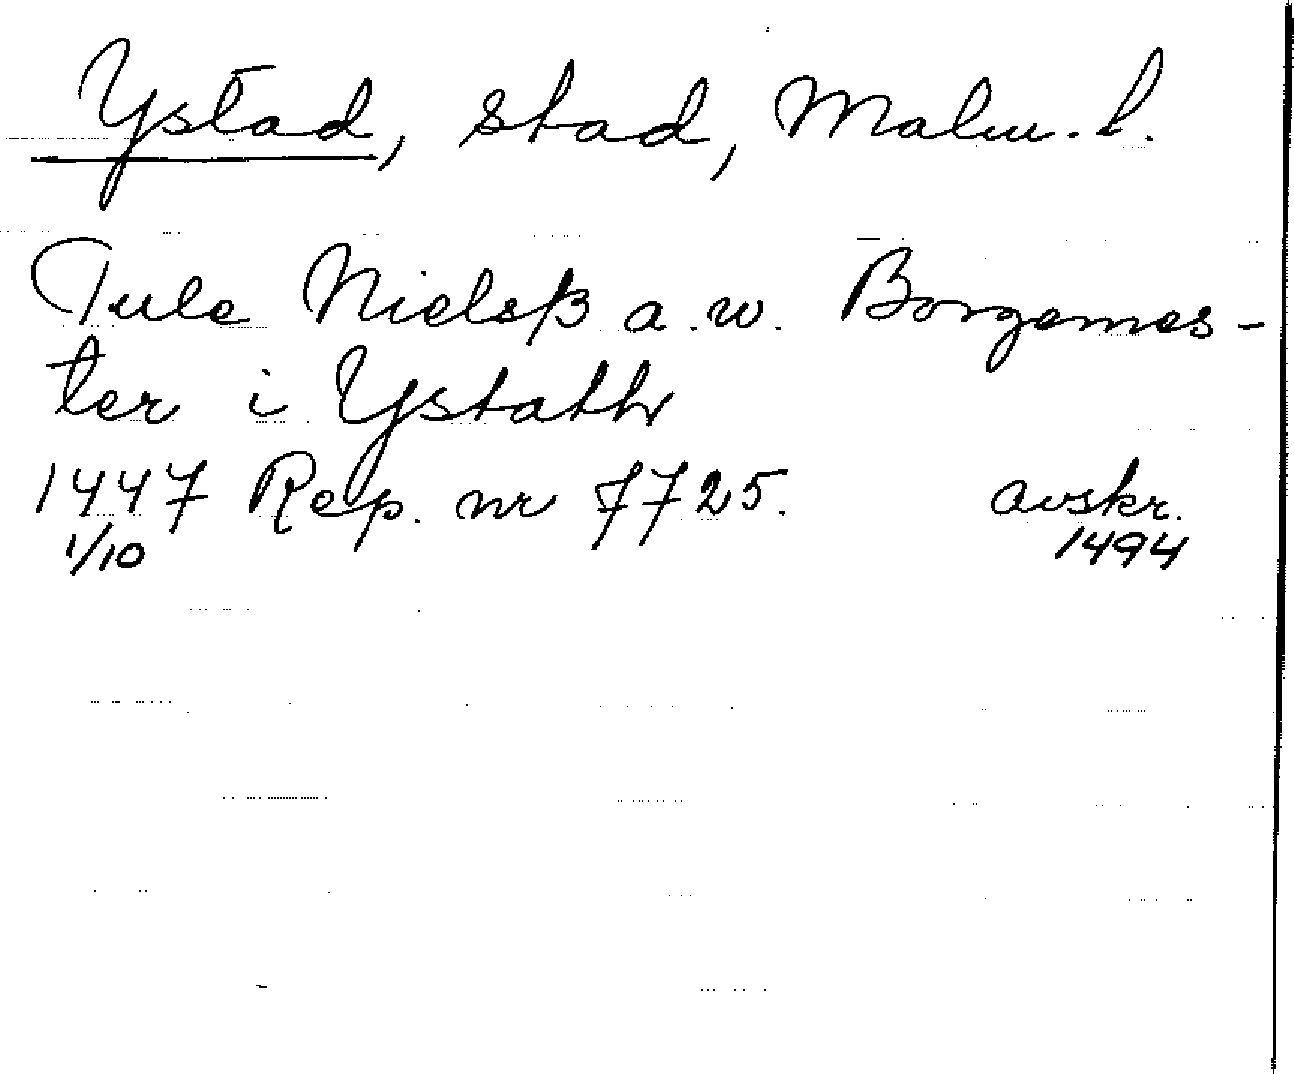 Ystad, stad, Malm. l.
Tule Nielsß a.w. Borgemes-
ter i Ystathr
1447 Rep. nr 7725. avskr.
1/10 1494